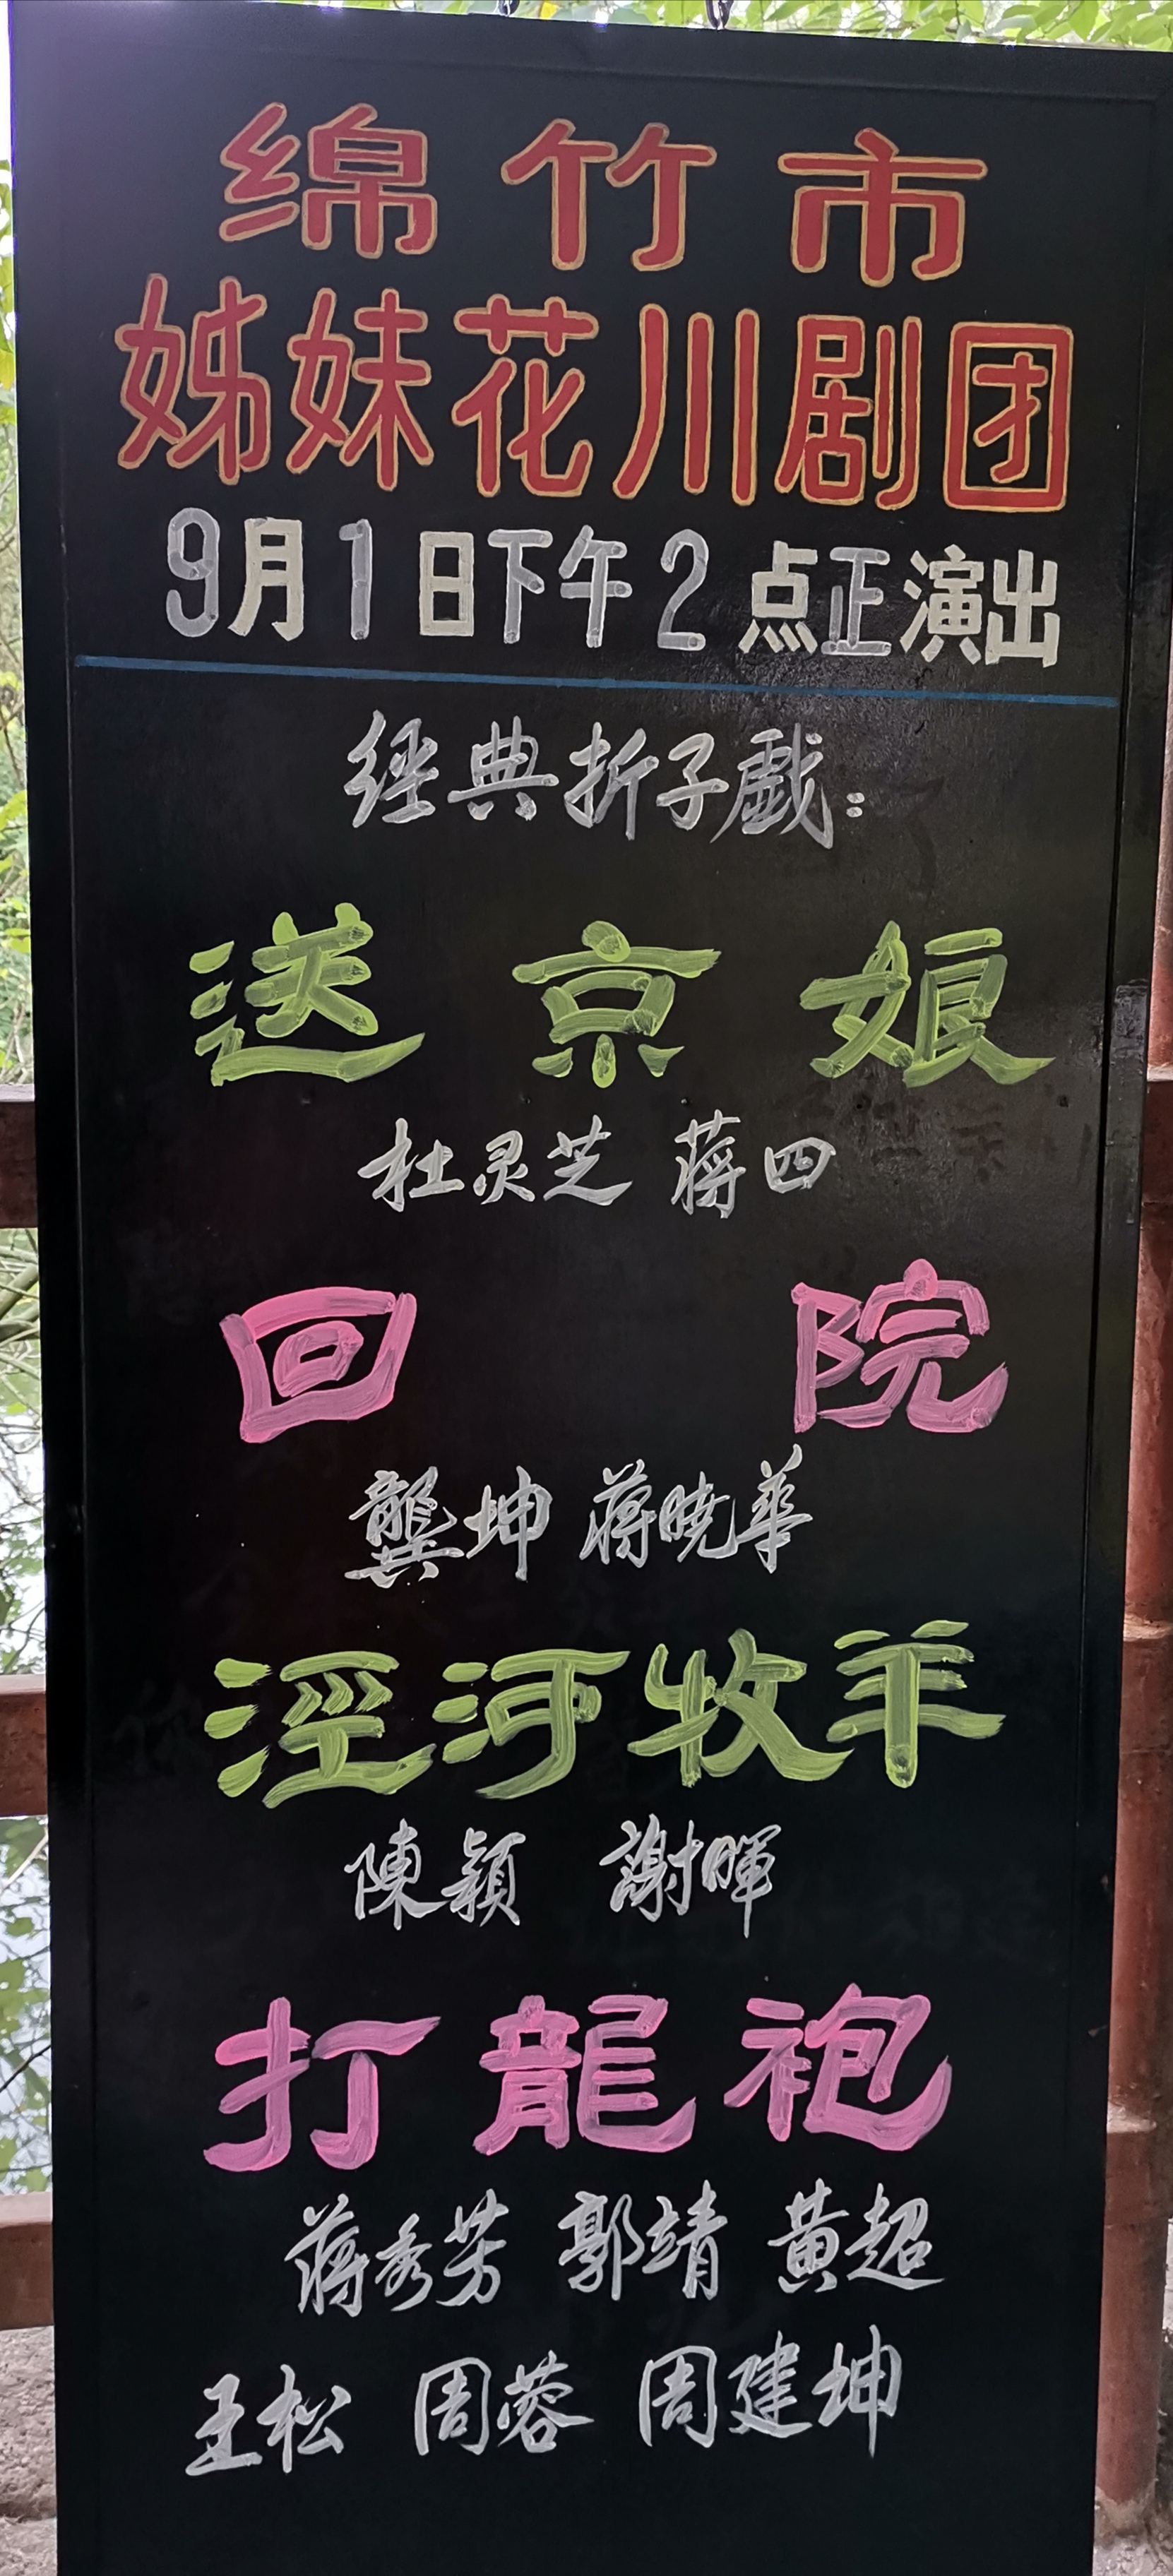 绵竹市
姊妹花川剧团
9月1日下午2点正演出
經典折子戲：
送京娘
杜灵芝 蒋四
回院
龔坤 蒋曉華
涇河牧羊
陳穎 謝暉
打龍袍
蒋秀芳 郭靖 黄超
王松 周蓉 周建坤